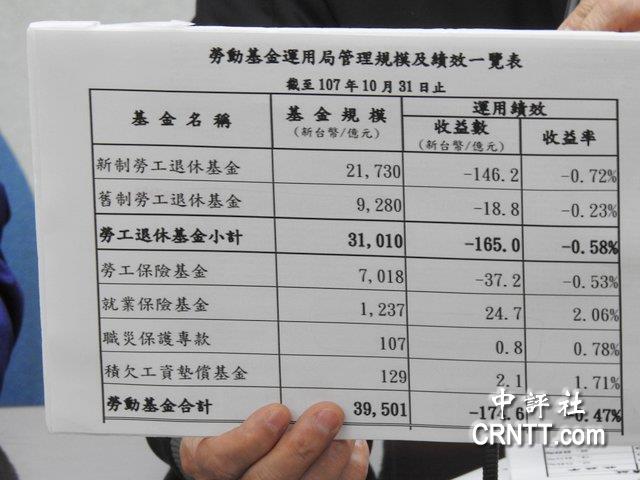 勞動基金運用局管理規模及績效一覽表
截至107年10月31日止
基金名稱 基金規模 (新台幣/億元) 運用績效
收益數 (新台幣/億元) 收益率
新制勞工退休基金 21,730 -146.2 -0.72%
舊制勞工退休基金 9,280 -18.8 -0.23%
勞工退休基金小計 31,010 -165.0 -0.58%
勞工保險基金 7,018 -37.2 -0.53%
就業保險基金 1,237 24.7 2.06%
職災保護專款 107 0.8 0.78%
積欠工資墊償基金 129 2.1 1.71%
勞動基金合計 39,501 -174.6 -0.47%
中評社
CRNTT.com